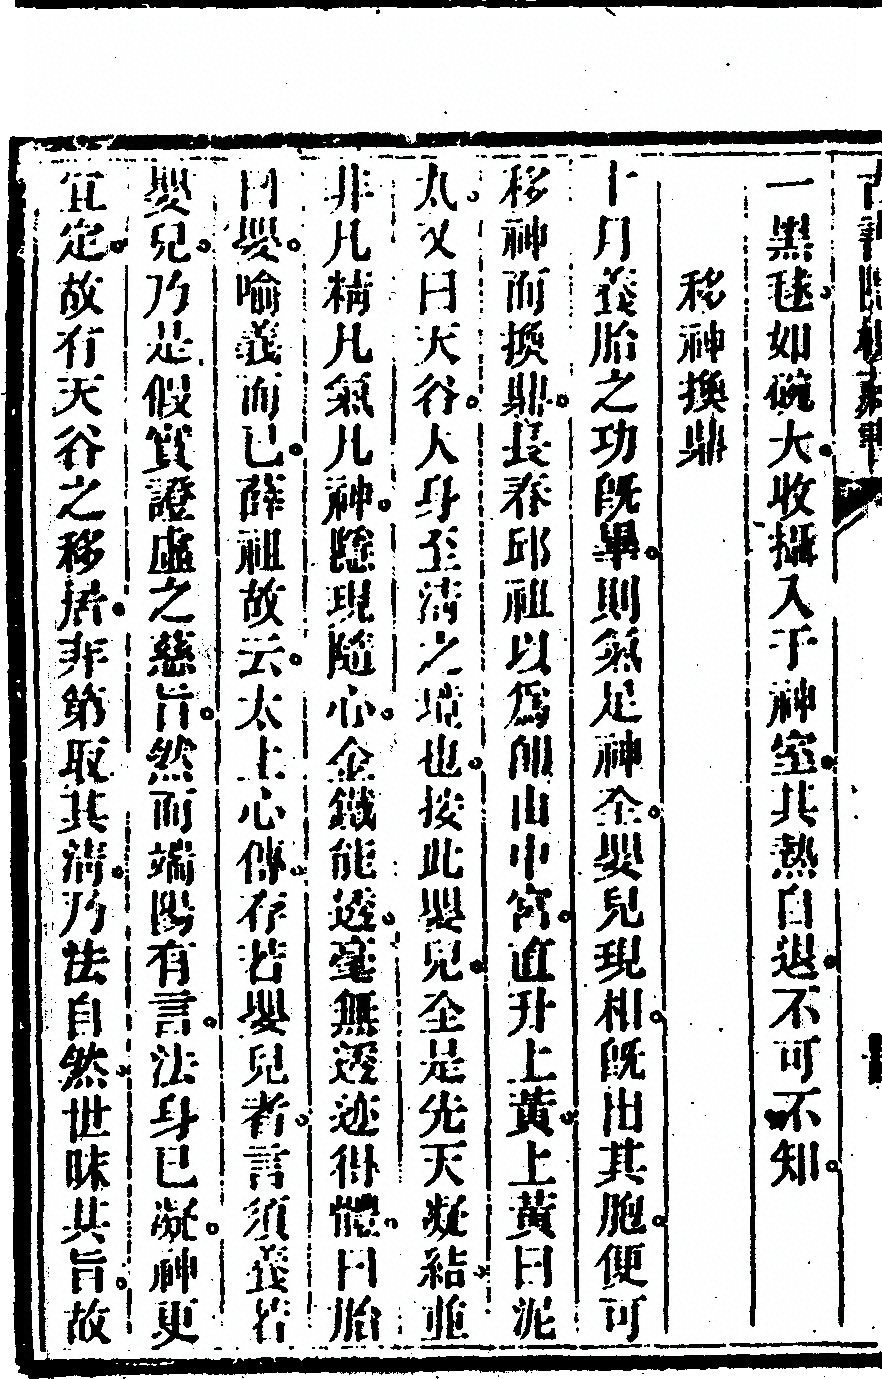 一點毬如碗大收攝入于神室其熱自退不可不知
移神換鼎
十月養胎之功旣畢則氣足神全嬰兒現相旣出其胞便可
移神而換鼎長春邱祖以爲崑山中宮直升上黃上黃曰泥
太又曰天谷人身至淸之境也按此嬰兒全是先天凝結並
非凡精凡氣凡神隱現隨心金鐵能透毫無窒迹得體曰胎
曰嬰喻義而已薛祖故云太上心傳存若嬰兒者言須養若
嬰兒乃是假實證虛之慈旨然而端陽有言法身已凝神更
宜定故有天谷之移居非第取其淸乃法自然世昧其旨故